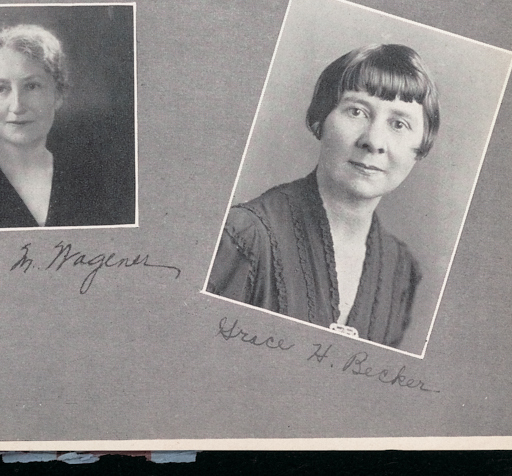 M. Wagener
Grace H. Becker